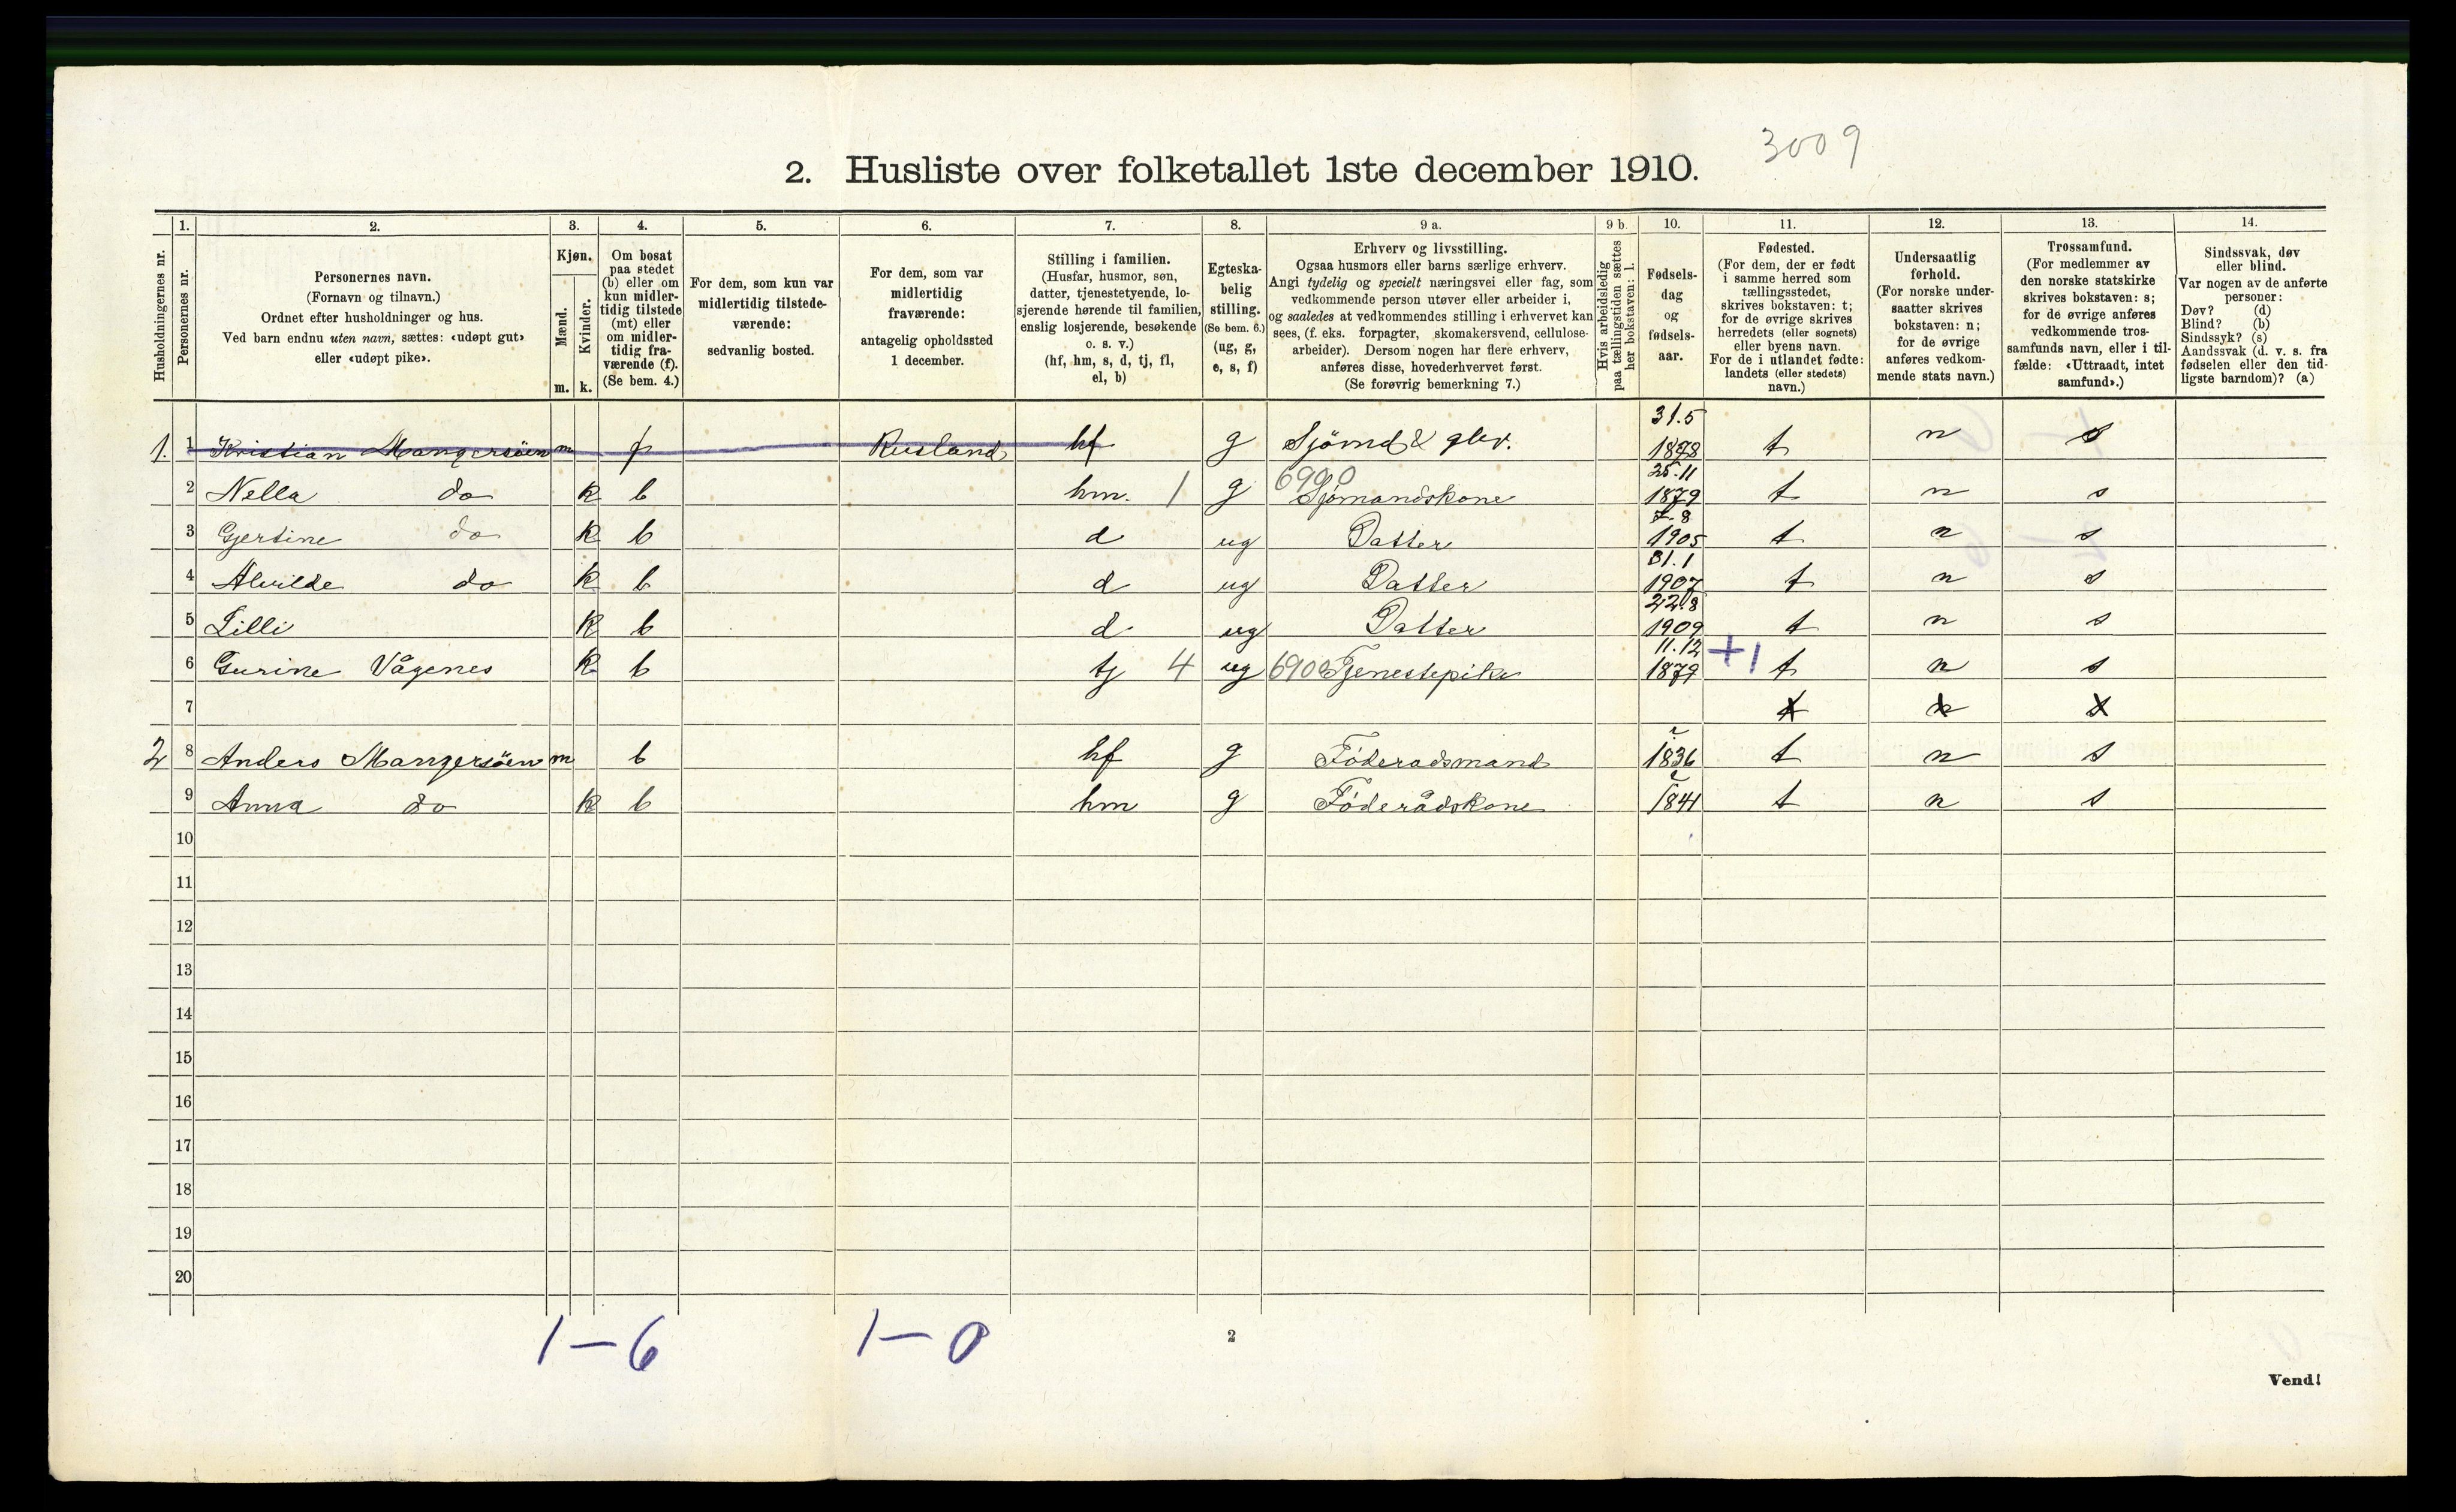 3009
2. Husliste over folketallet 1ste december 1910.
1. 2. 3. 4. 5. 6. 7. 8. 9 a. 9 b. 10. 11. 12. 13. 14.
Husholdningernes nr.
Personernes nr.
Personernes navn.
(Fornavn og tilnavn.)
Ordnet efter husholdninger og hus.
Ved barn endnu uten navn, sættes: «udøpt gut»
eller «udøpt pike».
Kjøn.
Mænd.
m.
Kvinder.
k.
Om bosat
paa stedet
(b) eller om
kun midler-
tidig tilstede
(mt) eller
om midler-
tidig fra-
værende (f).
(Se bem. 4.)
For dem, som kun var
midlertidig tilstede-
værende:
sedvanlig bosted.
For dem, som var
midlertidig
fraværende:
antagelig opholdssted
1 december.
Stilling i familien.
(Husfar, husmor, søn,
datter, tjenestetyende, lo-
sjerende hørende til familien,
enslig losjerende, besøkende
o. s. v.)
(hf, hm, s, d, tj, fl,
el, b)
Egteska-
belig
stilling.
(Se bem. 6.)
(ug, g,
e, s, f)
Erhverv og livsstilling.
Ogsaa husmors eller barns særlige erhverv.
Angi tydelig og specielt næringsvei eller fag, som
vedkommende person utøver eller arbeider i,
og saaledes at vedkommendes stilling i erhvervet kan
sees, (f. eks. forpagter, skomakersvend, cellulose-
arbeider). Dersom nogen har flere erhverv,
anføres disse, hovederhvervet først.
(Se forøvrig bemerkning 7.)
Hvis arbeidsledig
paa tællingstiden sættes
her bokstaven: l.
Fødsels-
dag
og
fødsels-
aar.
Fødested.
(For dem, der er født
i samme herred som
tællingsstedet,
skrives bokstaven: t;
for de øvrige skrives
herredets (eller sognets)
eller byens navn.
For de i utlandet fødte:
landets (eller stedets)
navn.)
Undersaatlig
forhold.
(For norske under-
saatter skrives
bokstaven: n;
for de øvrige
anføres vedkom-
mende stats navn.)
Trossamfund.
(For medlemmer av
den norske statskirke
skrives bokstaven: s;
for de øvrige anføres
vedkommende tros-
samfunds navn, eller i til-
fælde: «Uttraadt, intet
samfund».)
Sindssvak, døv
eller blind.
Var nogen av de anførte
personer:
Døv? (d)
Blind? (b)
Sindssyk? (s)
Aandssvak (d. v. s. fra
fødselen eller den tid-
ligste barndom)? (a)
1. 1 Kristian Mangersöen m f Rusland hf g Sjömd & glev. 31.5 1878 t n s
2 Nella do k b hm. 1 g 6900 Sjömandskone 25.11 1879 t n s
3 Gjertine do k b d ug Datter 7.8 1905 t n s
4 Alvilde do k b d ug Datter 31.1 1907 t n s
5 Lilli k b d ug Datter 22.8 1909 t n s
6 Gurine Vågenes k b tj 4 ug 6902 Tjenestepike 11.12 1879 +1 t n s
7 t n s
2 8 Anders Mangersöen m b hf g Föderadsmand 1836 t n s
9 Anna do k b hm g Föderådskone 1841 t n s
10
11
12
13
14
15
16
17
18
19
20
1 — 6 1 — 0
2
Vend!